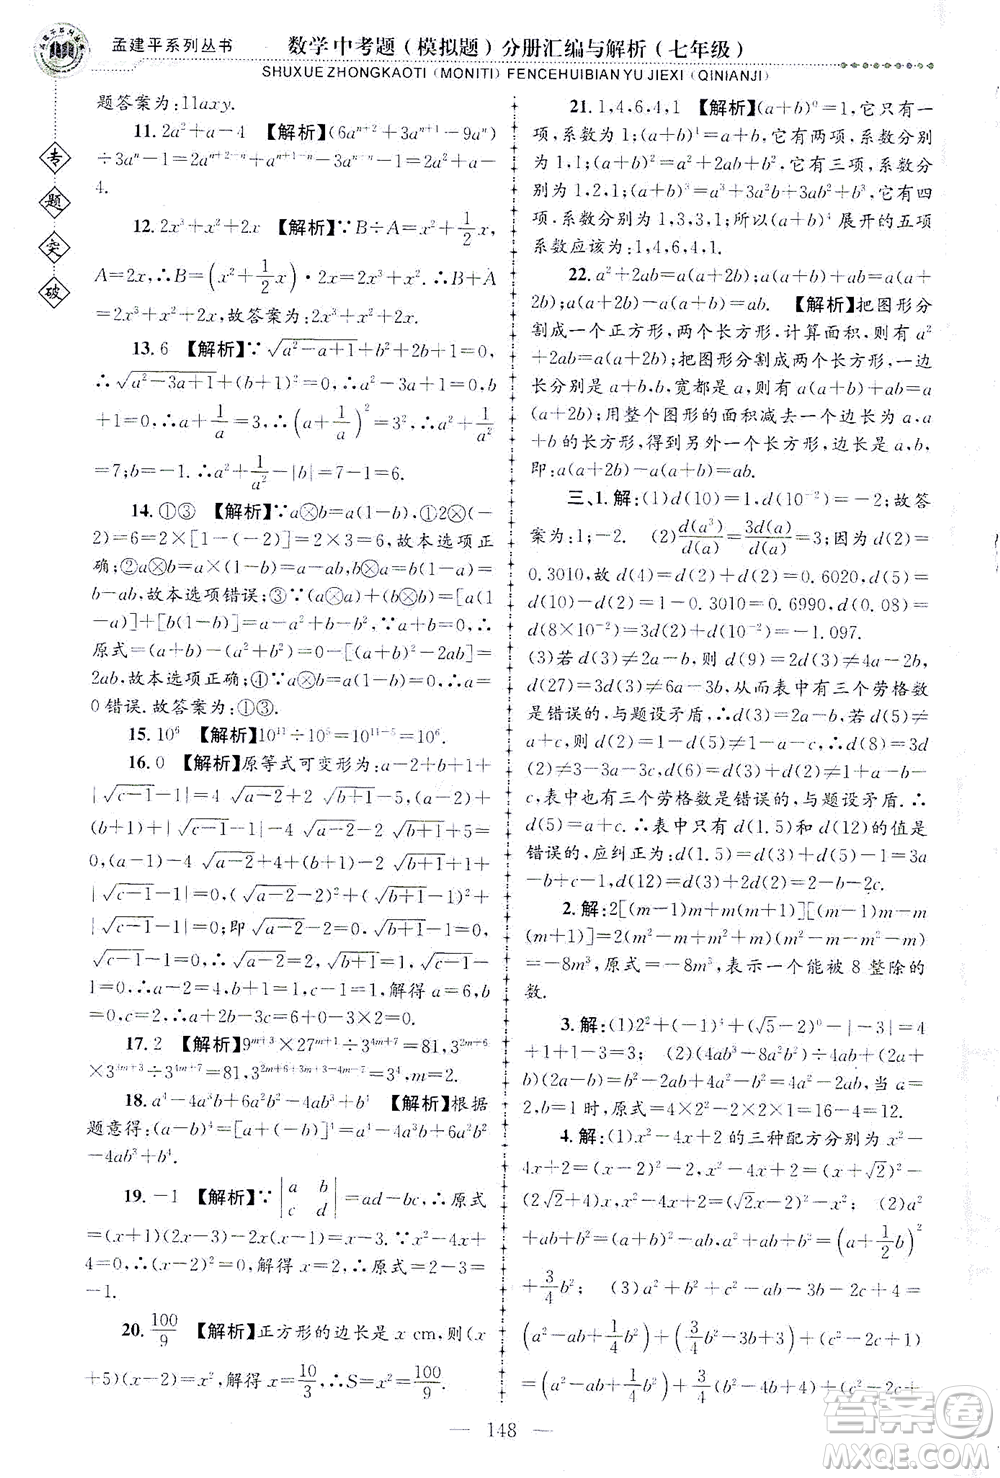 孟建平系列丛书
数学中考题（模拟题）分册汇编与解析（七年级）
SHUXUE ZHONGKAOTI (MONITI) FENCEHUIBIAN YU JIEXI (QINIANJI)
专
题
突
破
题答案为:11axy.
11. 2a²+a-4 【解析】(6aⁿ⁺²+3aⁿ⁺¹-9aⁿ)
÷3aⁿ⁻¹=2a³+a²-3a,
4.
12. 2x³+x²+2x 【解析】∵B÷A=x²+1/2 x,
A=2x,∴B=(x²+1/2 x)·2x=2x³+x².∴B+A
=2x³+x²+2x,故答案为:2x³+x²+2x.
13. 6 【解析】∵√(a²-a+1)+b²+2b+1=0,
∴√(a²-3a+1)+(b+1)²=0,∴a²-3a+1=0,b
+1=0,∴a+1/a=3,∴(a+1/a)²=3²,∴a²+1/a²=7,
b=-1.∴a²+1/a²-|b|=7-1=6.
14. ①③ 【解析】∵a⊗b=a(1-b),①2⊗(-
2)=2×[1-(-2)]=2×3=6,故本选项正
确;②a⊗b=a(1-b)=a-ab,b⊗a=b(1-a)=
b-ab,故本选项错误;③∵(a⊗a)+(b⊗b)=[a(1
-a)]+[b(1-b)]=a-a²+b-b²,∵a+b=0,∴
原式=(a+b)-(a²+b²)=0-[(a+b)²-2ab]=
2ab,故本选项正确;④∵a⊗b=a(1-b)=0,∴a=
0错误.故答案为:①③.
15. 10⁶ 【解析】10¹¹÷10⁵=10¹¹⁻⁵=10⁶.
16. 0 【解析】原等式可变形为:a-2+b+1+
|√(c-1)-1|=4√(a-2)+2√(b+1)-5,(a-2)+
(b+1)+|√(c-1)-1|-4√(a-2)-2√(b+1)+5=
0,(a-2)-4√(a-2)+4+(b+1)-2√(b+1)+1+
|√(c-1)-1|=0,(√(a-2)-2)²+(√(b+1)-1)²+
|√(c-1)-1|=0;即√(a-2)-2=0,√(b+1)-1=0,
√(c-1)-1=0,∴√(a-2)=2,√(b+1)=1,√(c-1)=
1,∴a-2=4,b+1=1,c-1=1,解得a=6,b=
0,c=2;∴a+2b-3c=6+0-3×2=0.
17. 2 【解析】9ᵐ⁺³×27ᵐ⁺¹÷3⁴ᵐ⁺⁷=81,3²ᵐ⁺⁶
×3³ᵐ⁺³÷3⁴ᵐ⁺⁷=81,3²ᵐ⁺⁶⁺³ᵐ⁺³⁻⁴ᵐ⁻⁷=3⁴,m=2.
18. a⁴-4a³b+6a²b²-4ab³+b⁴ 【解析】根据
题意得:(a-b)⁴=[a+(-b)]⁴=a⁴-4a³b+6a²b²
-4ab³+b⁴.
19. -1 【解析】∵|a b c d|=ad-bc,∴原式
=(x+1)(2x-3)-2x(x-1)=x-3,∵x²-4x+
4=0,∴(x-2)²=0,∴x=2,∴原式=2-3=
-1.
20. 100/9 【解析】正方形的边长是x cm,则(x
+5)(x-2)=x²,解得x=10/3,∴S=x²=100/9.
21. 1,4,6,4,1 【解析】(a+b)⁰=1,它只有一
项,系数为1;(a+b)¹=a+b,它有两项,系数分别为
1,1;(a+b)²=a²+2ab+b²,它有三项,系数分别为
1,2,1;(a+b)³=a³+3a²b+3ab²+b³,它有四
项,系数分别为1,3,3,1;所以(a+b)⁴展开的五项
系数应该为:1,4,6,4,1.
22. a²+2ab=a(a+2b);a(a+b)+ab=a(a+
2b);a(a+2b)-a(a+b)=ab 【解析】把图形分
割成一个正方形,两个长方形,计算面积,则有a²
+2ab=a(a+2b);把图形分割成两个长方形,一边
长分别是a+b,b,宽都是a,则有a(a+b)+ab=a(a
+2b);用整个图形的面积减去一个边长为a、a+
b的长方形,得到另外一个长方形,边长为a,b,
即:a(a+2b)-a(a+b)=ab.
三、1. 解:(1)d(10)=1,d(10⁻²)=-2;故答
案为:1;-2. (2)d(a³)/d(a)=3d(a)/d(a)=3;因为d(2)=
0.3010,故d(4)=d(2)+d(2)=0.6020,d(5)=
d(10)-d(2)=1-0.3010=0.6990,d(0.08)=
d(8×10⁻²)=3d(2)+d(10⁻²)=-1.097.
(3)若d(3)≠2a-b,则d(9)=2d(3)≠4a-2b,
d(27)=3d(3)≠6a-3b,从而表中有三个劳格数是
错误的,与题设矛盾,∴d(3)=2a-b;若d(5)≠a
+c,则d(2)=1-d(5)≠1-a-c,∴d(8)=3d(2)
≠3-3a-3c,d(6)=d(3)+d(2)≠1+a-b-
c,表中也有三个劳格数是错误的,与题设矛盾.∴
d(5)=a+c,∴表中只有d(1.5)和d(12)的值是
错误的,应纠正为:d(1.5)=d(3)+d(5)-1=3a
-b+c-1,d(12)=d(3)+2d(2)=2-b-2c.
2. 解:2[(m-1)+m+(m+1)][(m-1)m+
(m+1)m+(m-1)(m+1)]=...
=-8m³,原式=-8m³,表示一个能被8整除的
数.
3. 解:(1)2²+(-1)⁴+(√5-2)⁰-|-3|=4
+1+1-3=3; (2)(4ab³-8a²b²)÷4ab+(2a+b)
(2a-b)=b²-2ab+4a²-b²=4a²-2ab,当a=
2,b=1时,原式=4×2²-2×2×1=16-4=12.
4. 解:(1)x²-4x+2的三种配方分别为:x²-
4x+2=(x-2)²-2,x²-4x+2=(x+√2)²-
(2√2+4)x,x²-4x+2=(√2x-√2)²-x²; (2)a²+
ab+b²=(a+b)²-ab,a²+ab+b²=(a+1/2 b)²
+3/4 b²; (3)a²+b²+c²-ab-3b-2c+4=
(a²-ab+1/4 b²)+(3/4 b²-3b+3)+(c²-2c+1)
=(a²-ab+1/4 b²)+3/4(b²-4b+4)+(c²-2c+
148
答案圈
MXQE.COM